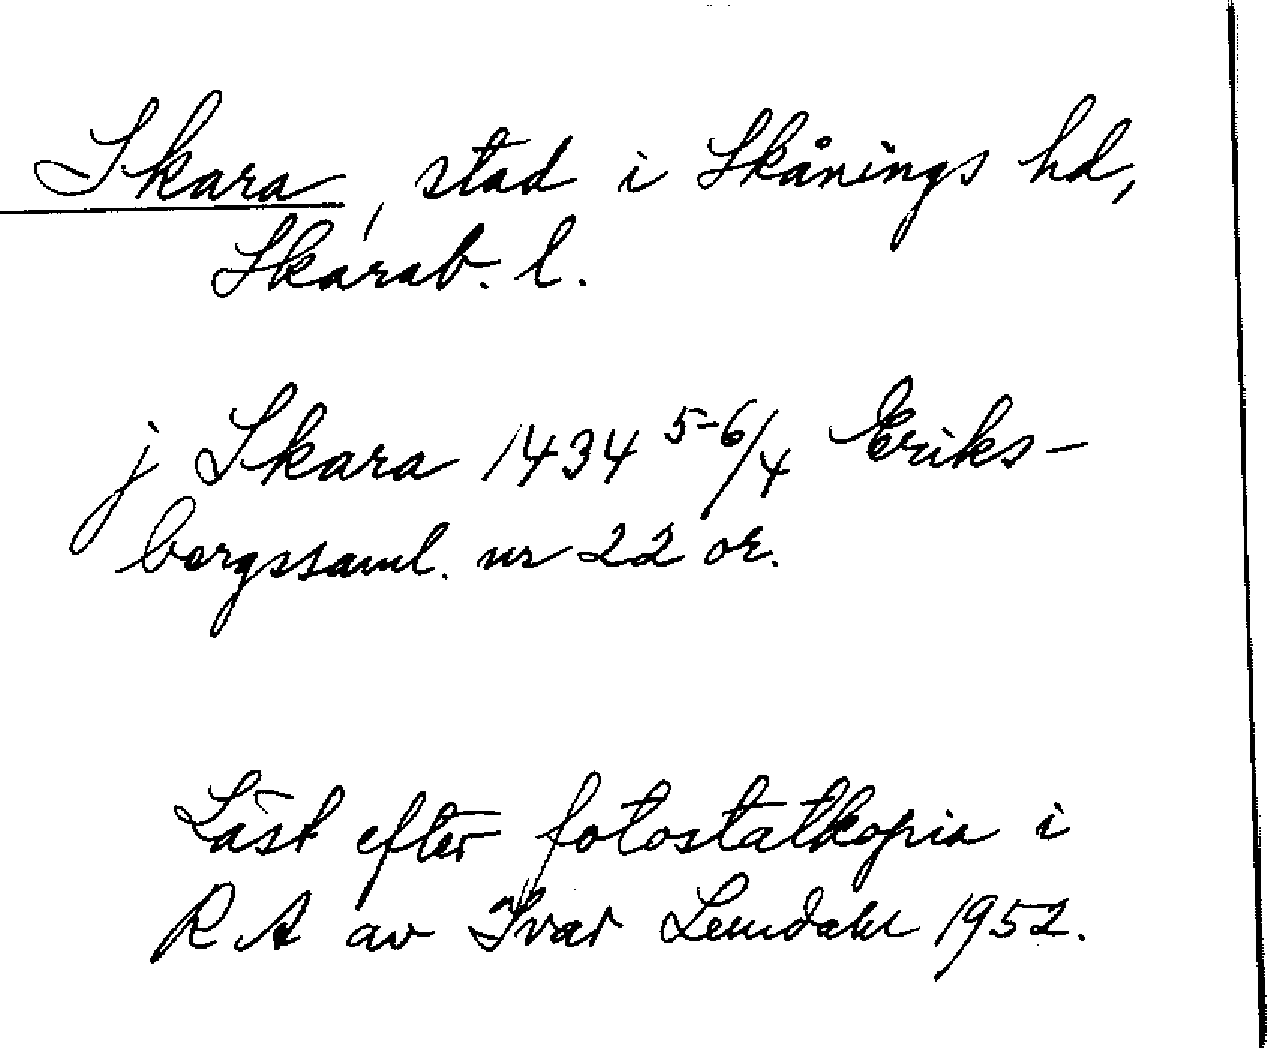 Skara, stad i Skånings hd,
Skarab. l.
j Skara 1434 5-6/4 Eriks-
bergssaml. nr 22 or.
Läst efter fotostatkopia i
RA av Ivar Lundahl 1952.